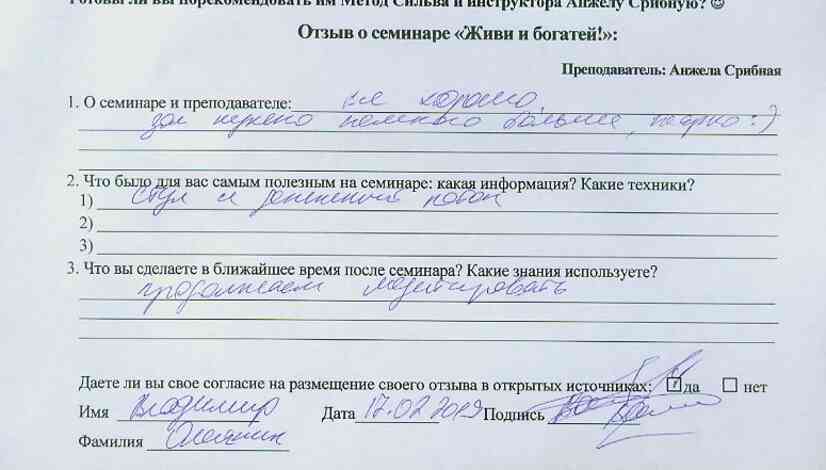 Готовы ли вы порекомендовать им Метод Сильва и инструктора Анжелу Срибную? ☺
Отзыв о семинаре «Живи и богатей!»:
Преподаватель: Анжела Срибная
1. О семинаре и преподавателе: все хорошо,
зал нужно немного больше, :)
2. Что было для вас самым полезным на семинаре: какая информация? Какие техники?
1) Стул и денежный поток
2)
3)
3. Что вы сделаете в ближайшее время после семинара? Какие знания используете?
продолжаем медитировать
Даете ли вы свое согласие на размещение своего отзыва в открытых источниках: ☑ да ☐ нет
Имя Владимир Дата 17.02.2019 Подпись
Фамилия